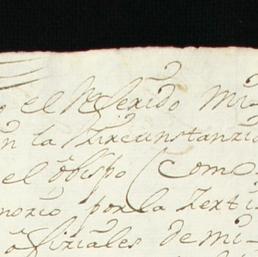 el Referido Mi-
en la Zircunstanzia
el obispo (Como
por la Zerti
ofiziales de mi-